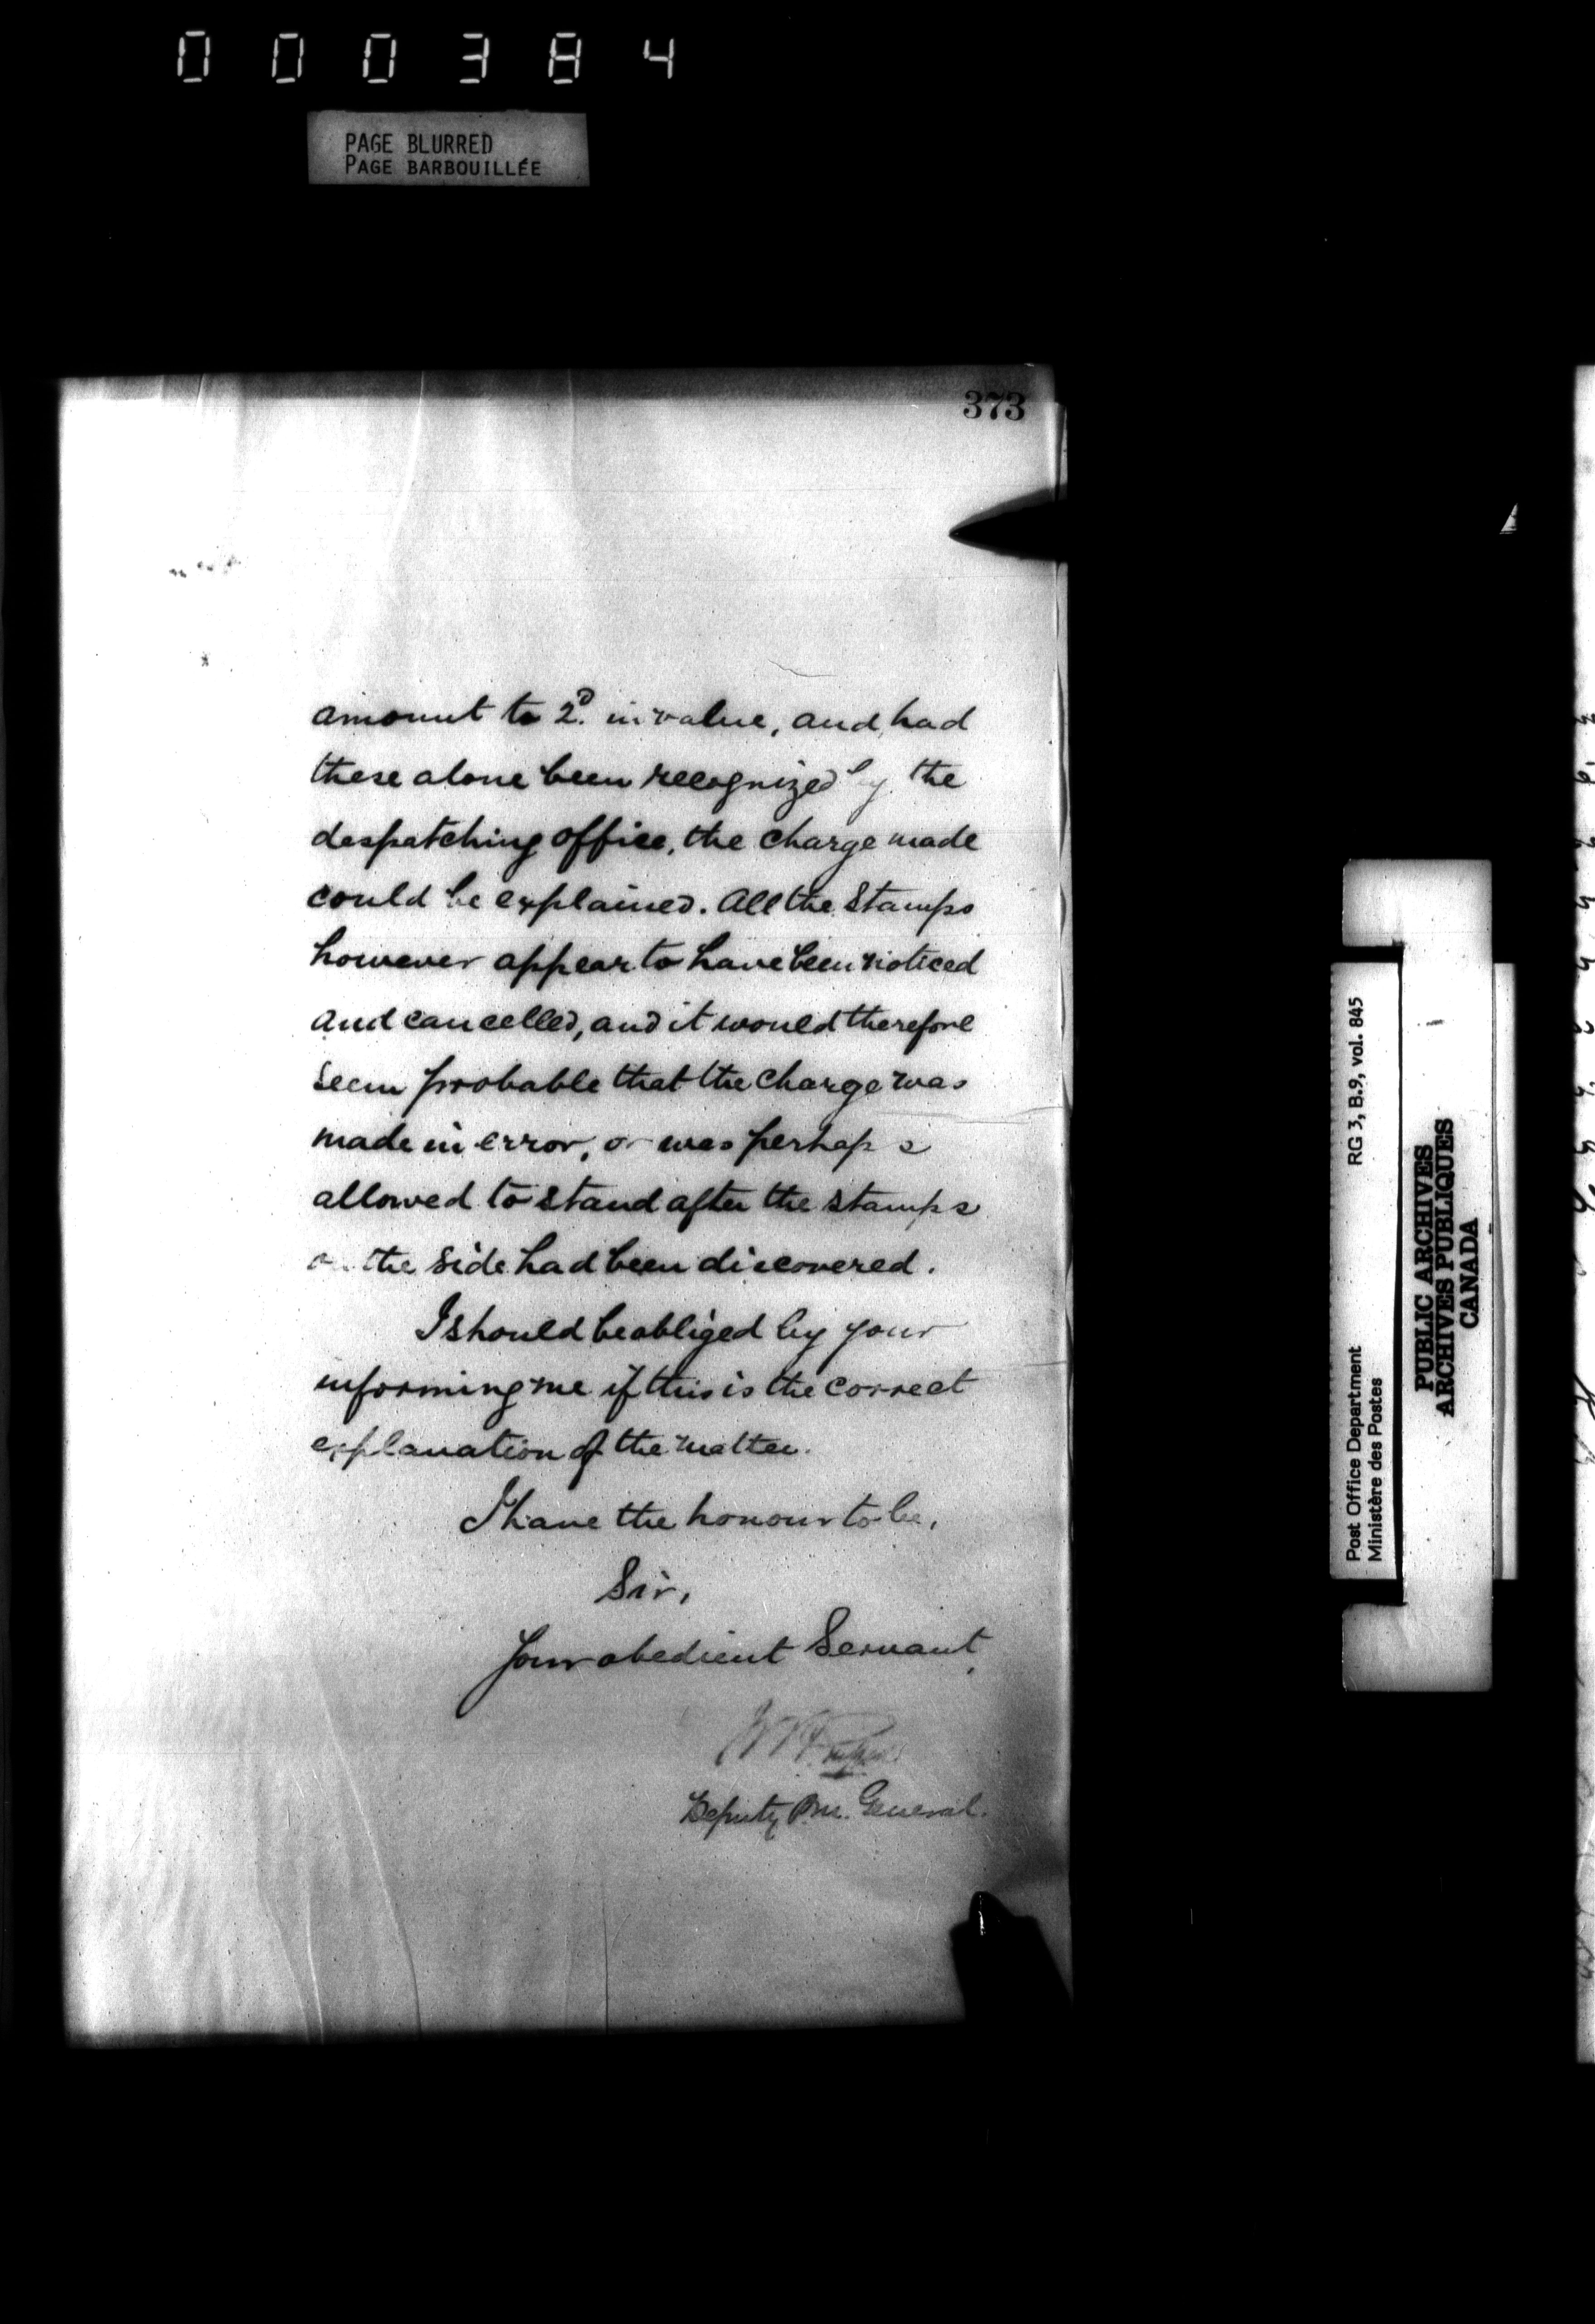 000384
PAGE BLURRED
PAGE BARBOUILLÉE
373
amount to 2d. in value, and had
these alone been recognized by the
despatching office, the charge made
could be explained. All the Stamps
however appear to have been noticed
and cancelled, and it would therefore
seem probable that the charge was
made in error, or was perhaps
allowed to stand after the stamps
on the side had been discovered.
I should be obliged by your
informing me if this is the correct
explanation of the matter.
I have the honour to be,
Sir,
Your obedient Servant,
Deputy P.M. General.
Post Office Department RG 3, B.9, vol. 845
Ministère des Postes
PUBLIC ARCHIVES
ARCHIVES PUBLIQUES
CANADA